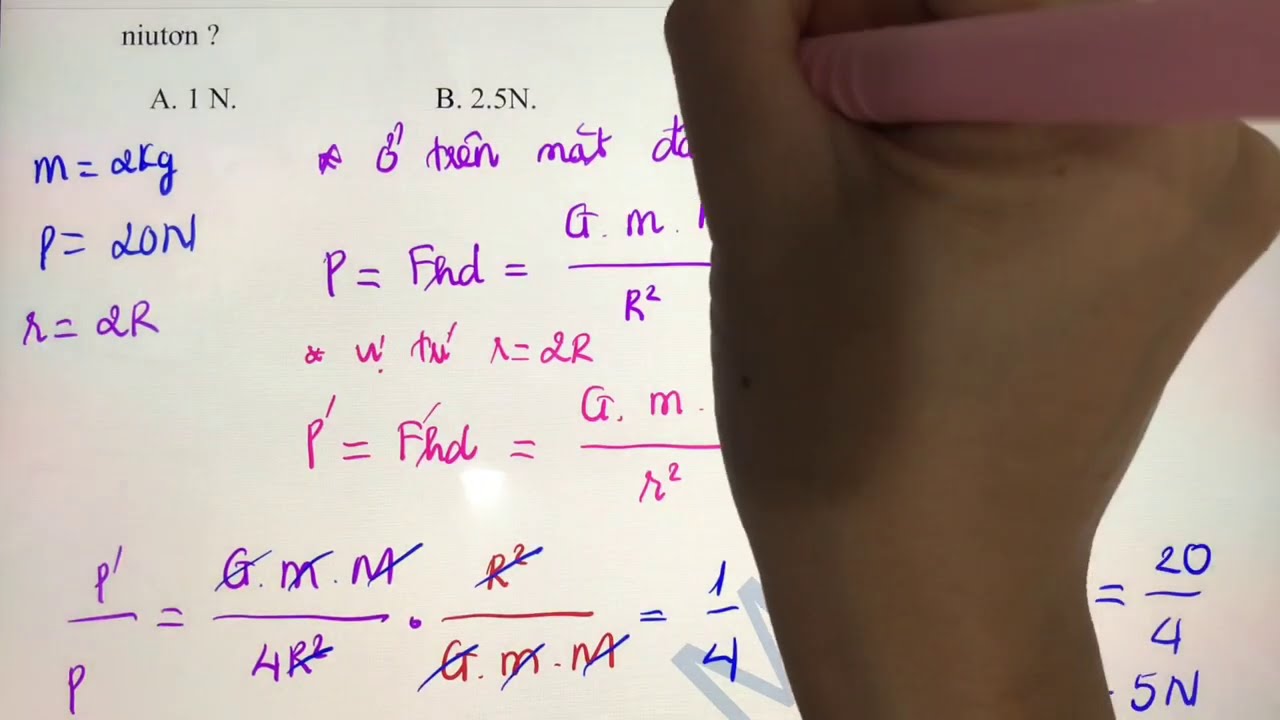 niutơn ?
A. 1 N. B. 2.5N.
m = 2kg
* Ở trên mặt
P = 20N
P = Fhd = G . m . / R²
r = 2R
* vị trí r = 2R
P' = F'hd = G . m . / r²
P' / P = G . m . M / 4R² . R² / G . m . M = 1 / 4
= 20 / 4
5N